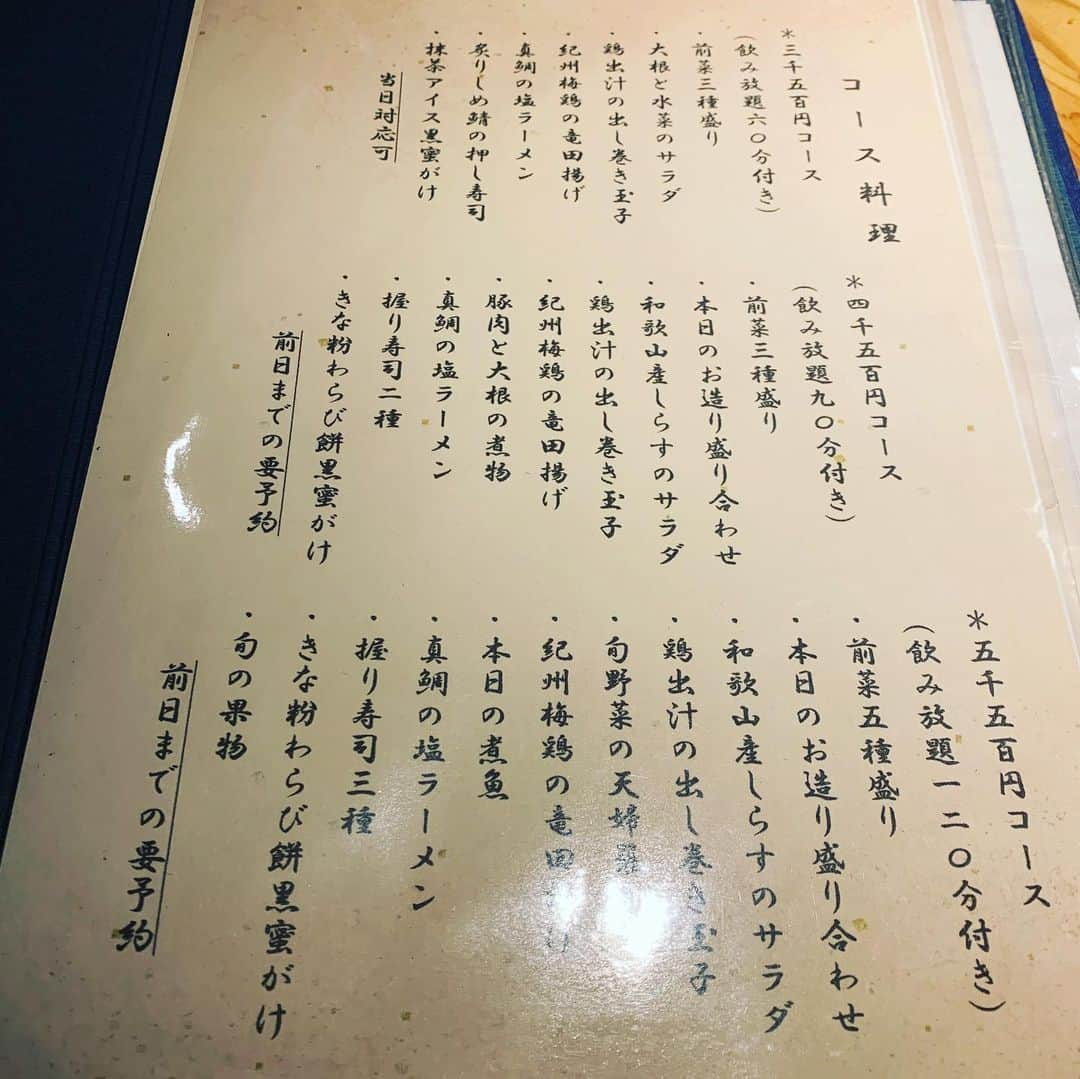 コース料理
＊三千五百円コース
(飲み放題六〇分付き)
・前菜三種盛り
・大根と水菜のサラダ
・鶏出汁の出し巻き玉子
・紀州梅鶏の竜田揚げ
・真鯛の塩ラーメン
・炙りしめ鯖の押し寿司
・抹茶アイス黒蜜がけ
当日対応可
＊四千五百円コース
(飲み放題九〇分付き)
・前菜三種盛り
・本日のお造り盛り合わせ
・和歌山産しらすのサラダ
・鶏出汁の出し巻き玉子
・紀州梅鶏の竜田揚げ
・豚肉と大根の煮物
・真鯛の塩ラーメン
・握り寿司二種
・きな粉わらび餅黒蜜がけ
前日までの要予約
＊五千五百円コース
(飲み放題一二〇分付き)
・前菜五種盛り
・本日のお造り盛り合わせ
・和歌山産しらすのサラダ
・鶏出汁の出し巻き玉子
・旬野菜の天婦羅
・紀州梅鶏の竜田揚げ
・本日の煮魚
・真鯛の塩ラーメン
・握り寿司三種
・きな粉わらび餅黒蜜がけ
・旬の果物
前日までの要予約